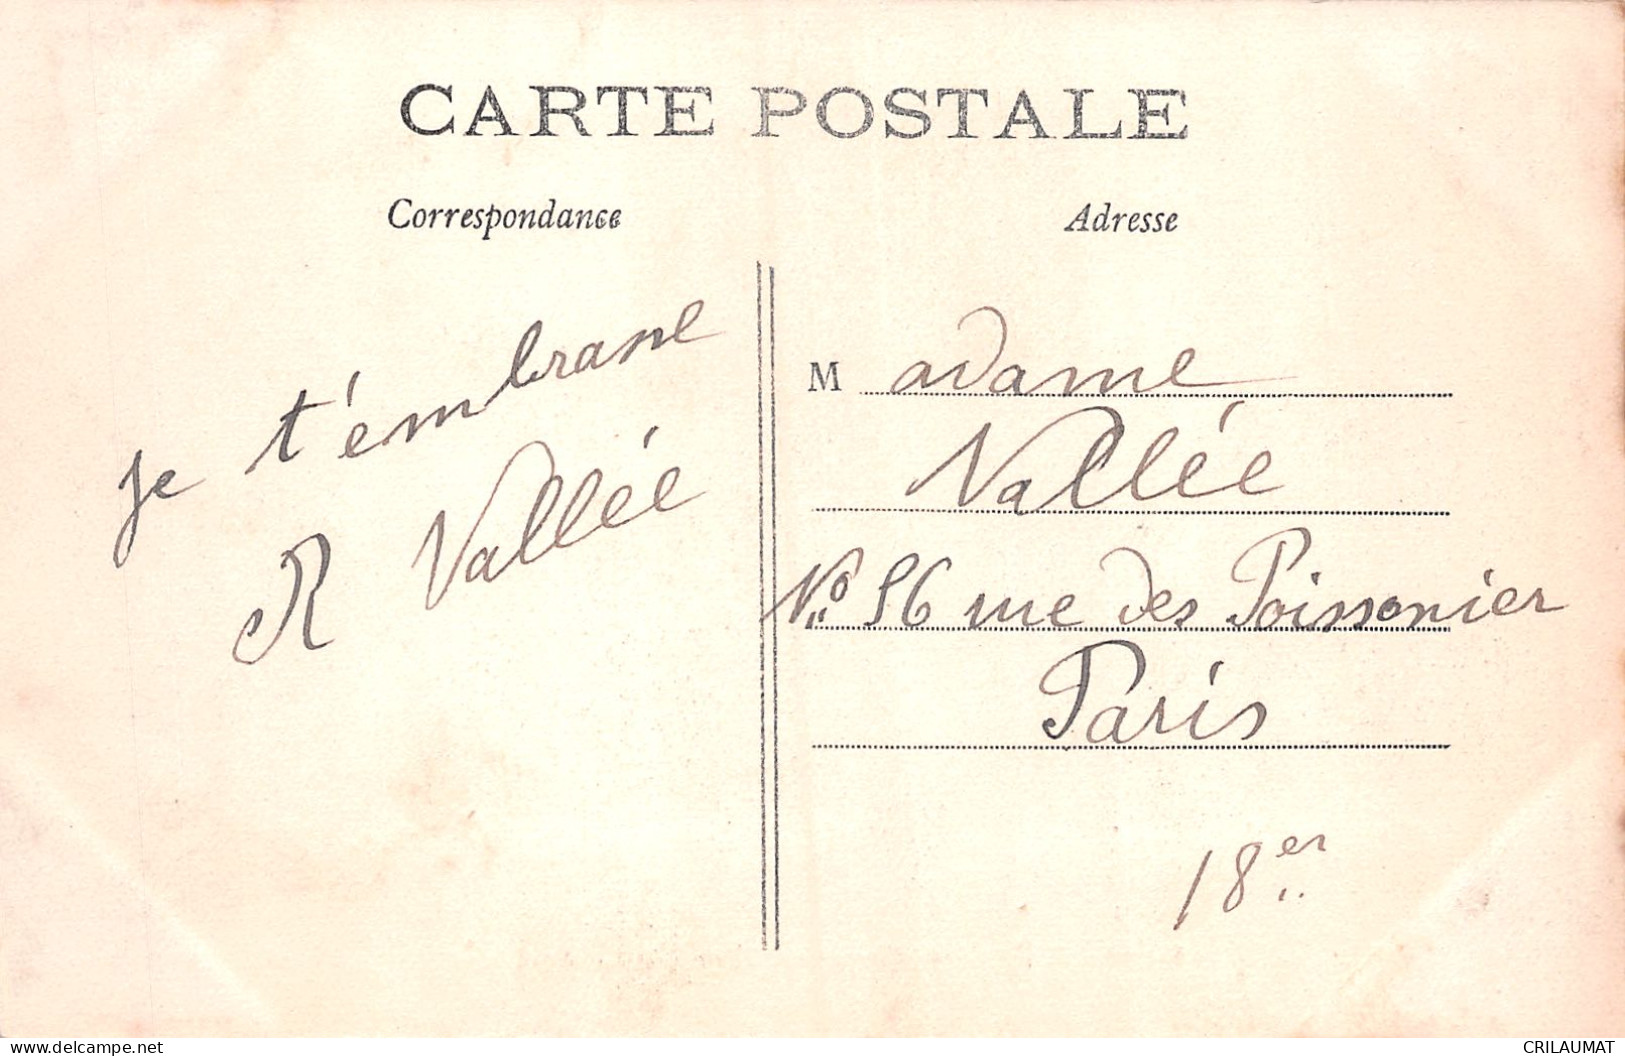 CARTE POSTALE
Correspondance
Adresse
je t'embrasse
R Vallée
Madame
Vallée
No 56 rue des Poissonier
Paris
18er
delcampe.net
CRILAUMAT